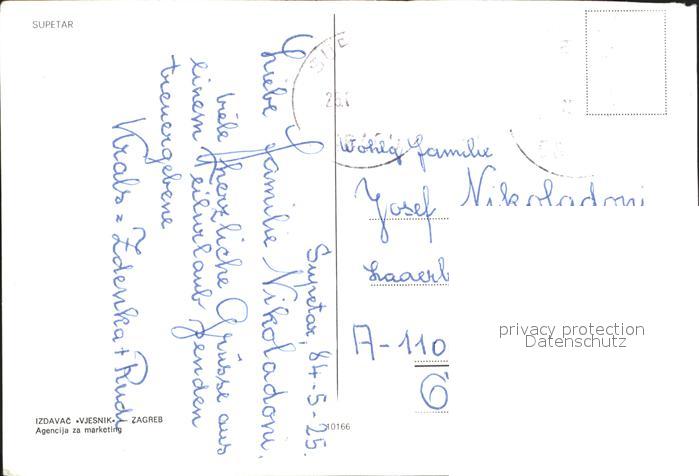 SUPETAR
Supetar, 84-5-25.
Liebe Familie Nikoladoni,
viele herzliche Grüsse aus
einem Heilurlaub senden
treuergebene
Krals = Zdenka + Rudi
Wohlg Familie
Josef Nikoladoni
Laaerb
A-110
Ö
privacy protection
Datenschutz
IZDAVAČ «VJESNIK» — ZAGREB
Agencija za marketing
10166